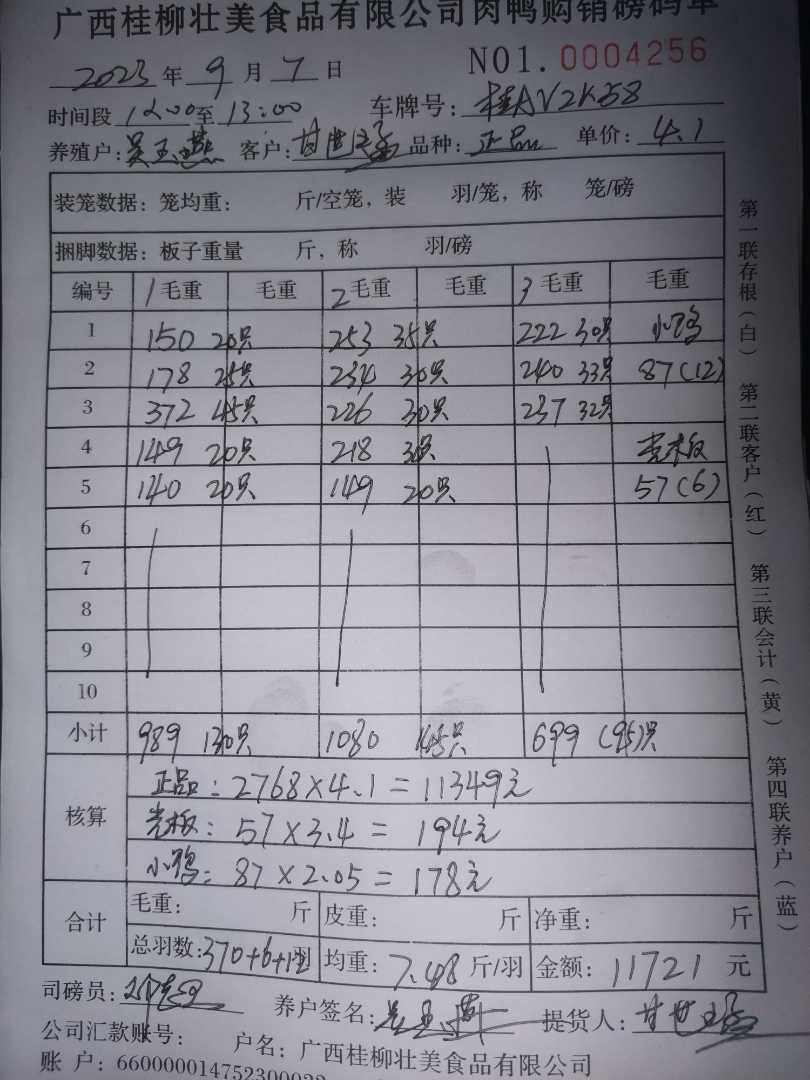 广西桂柳壮美食品有限公司肉鸭购销磅码单
2023年9月7日 NO1.0004256
时间段 1200至13:00 车牌号：桂AV2K58
养殖户：吴玉燕 客户：甘世 品种：正品 单价：4.1
装笼数据：笼均重： 斤/空笼，装 羽/笼，称 笼/磅
捆脚数据：板子重量 斤，称 羽/磅
编号 1毛重 毛重 2毛重 毛重 3毛重 毛重
1 150 20只 253 35只 222 30只 小鸭
2 178 25只 234 30只 240 33只 87(12)
3 372 45只 226 30只 237 32只
4 149 20只 218 30只 壳板
5 140 20只 149 20只 57(6)
6
7
8
9
10
小计 989 130只 1080 145只 699 (95)只
核算
正品：2768×4.1=11349元
壳板：57×3.4=194元
小鸭：87×2.05=178元
合计
毛重： 斤 皮重： 斤 净重： 斤
总羽数：370+6+12羽 均重：7.48斤/羽 金额：11721元
司磅员： 养户签名：吴玉燕 提货人：甘世
公司汇款账号： 户名：广西桂柳壮美食品有限公司
账 户：660000014752300022
第一联存根（白） 第二联客户（红） 第三联会计（黄） 第四联养户（蓝）